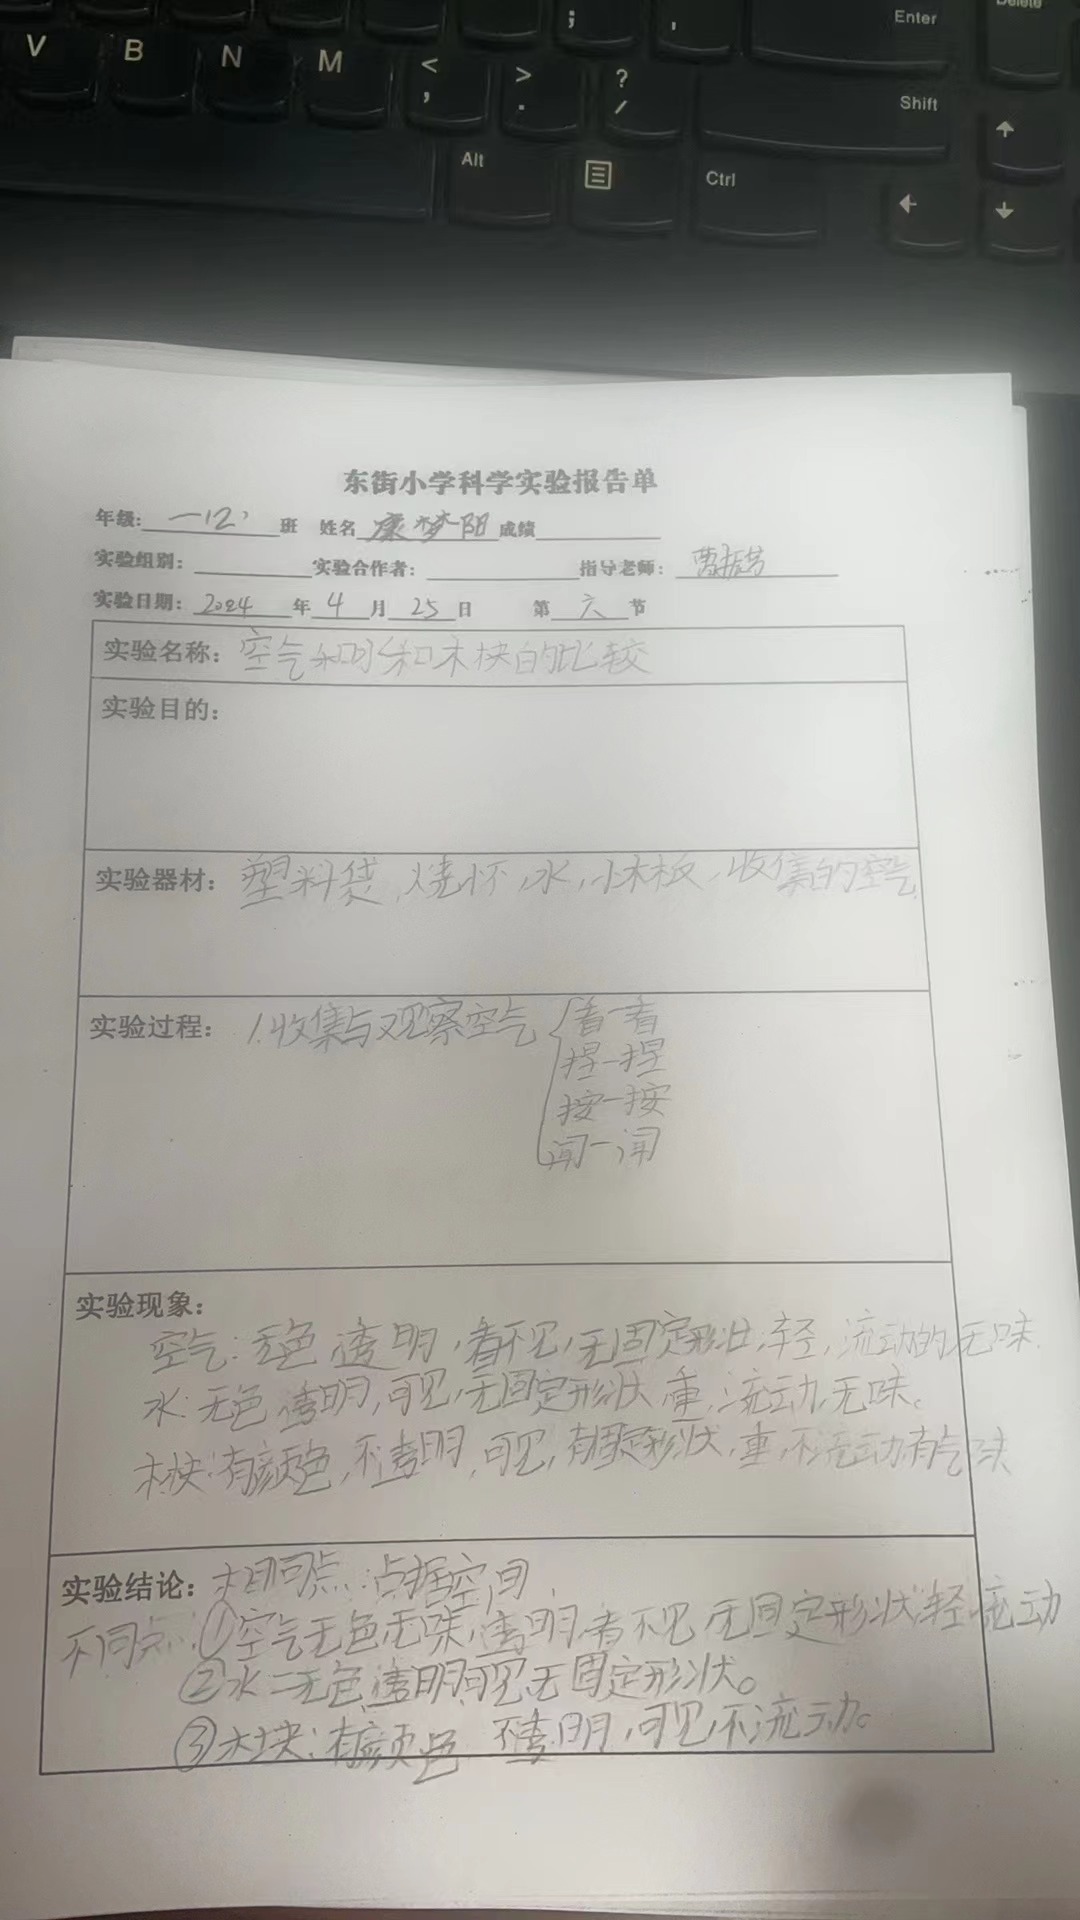 Enter
Delete
V B N M < , > . ? / Shift
Alt Ctrl
东街小学科学实验报告单
年级: 一(2) 班 姓名 康梦阳 成绩
实验组别: 实验合作者: 指导老师:
实验日期: 2024 年 4 月 25 日 第 六 节
实验名称: 空气和水和木块的比较
实验目的:
实验器材: 塑料袋,烧怀,水,小木板,收集的空气.
实验过程: 1.收集与观察空气 看一看
捏一捏
按一按
闻一闻
实验现象:
空气:无色,透明,看不见,无固定形状,轻,流动的,无味.
水:无色,透明,可见,无固定形状,重,流动,无味。
木块:有颜色,不透明,可见,有固定形状,重,不流动,有气味
实验结论: 相同点:占据空间.
不同点:①空气无色,无味,透明,看不见,无固定形状,轻,流动
②水:无色透明,可见,无固定形状。
③木块:有颜色,不透明,可见,不流动。